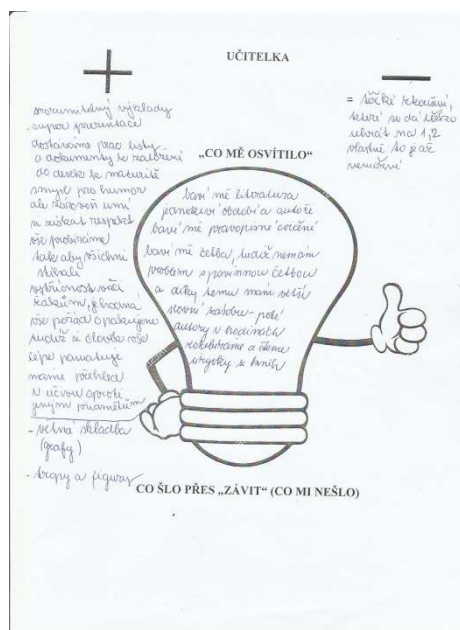 UČITELKA
+
srozumitelný výklady
- super prezentace
dostáváme prac. listy
a dokumenty k založení
do desek k maturitě
smysl pro humor
ale zároveň umí
si získat respekt
vše probíráme
tak aby všichni
stíhali
vstřícnost vůči
žákům, je hodná
vše pořád opakujeme
tudíž si člověk vše
lépe pamatuje
máme přehled
v učivu oproti
jiným
- větná skladba
(grafy)
- tropy a figury
—
= těžké zkoušení,
které se dá těžko
na 1,2
vlastně to je až
nemožné
„CO MĚ OSVÍTILO“
baví mě literatura
období a autoři
baví mě pravopisné cvičení
baví mě četba, tudíž nemám
problém s povinnou četbou
a díky tomu mám větší
slovní zásobu - poté
autory v hodinách
rozebíráme a čteme
úryvky z knih
CO ŠLO PŘES „ZÁVIT“ (CO MI NEŠLO)